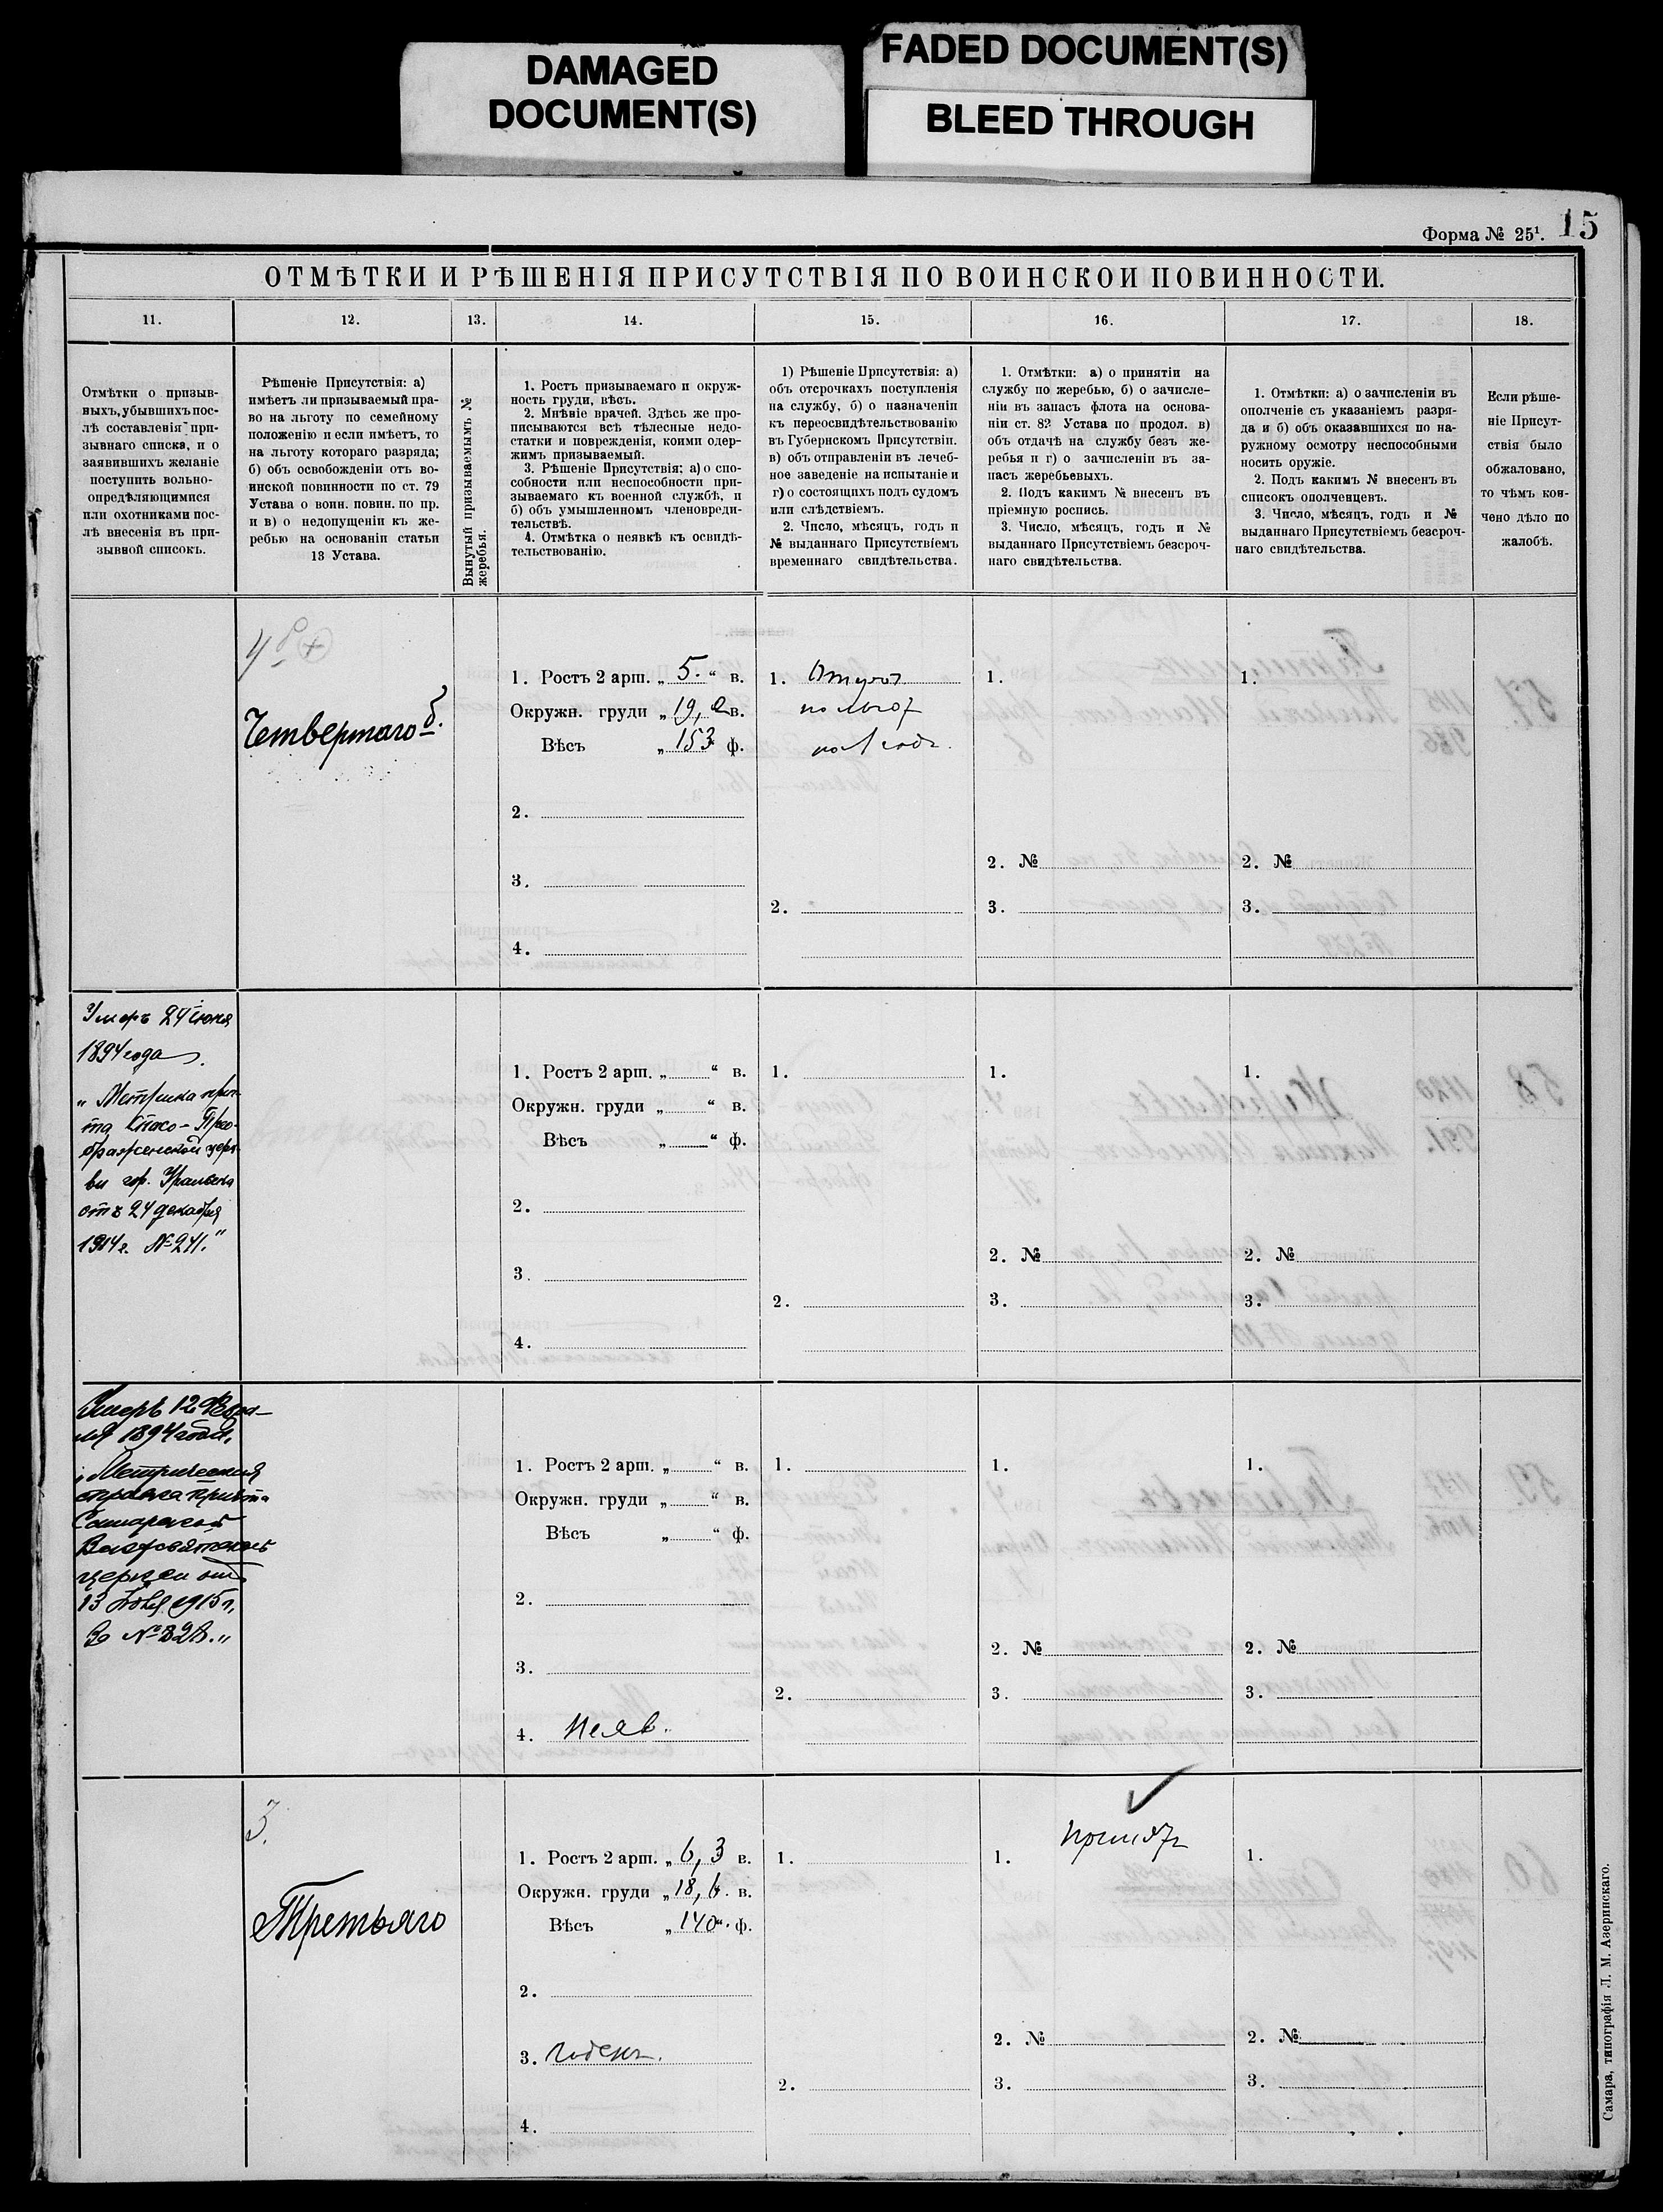 DAMAGED
DOCUMENT(S)
FADED DOCUMENT(S)
BLEED THROUGH
Форма № 25¹. 15
ОТМѢТКИ И РѢШЕНІЯ ПРИСУТСТВІЯ ПО ВОИНСКОИ ПОВИННОСТИ.
11. 12. 13. 14. 15. 16. 17. 18.
Отмѣтки о призыв-
ныхъ, убывшихъ пос-
лѣ составленія при-
зывнаго списка, и о
заявившихъ желаніе
поступить вольно-
опредѣляющимися
или охотниками пос-
лѣ внесенія въ при-
зывной списокъ.
Рѣшеніе Присутствія: а)
имѣетъ ли призываемый пра-
во на льготу по семейному
положенію и если имѣетъ, то
на льготу котораго разряда;
б) объ освобожденіи отъ во-
инской повинности по ст. 79
Устава о воин. повин. по пр.
и в) о недопущеніи къ же-
ребью на основаніи статьи
13 Устава.
Вынутый призываемымъ №
жеребья.
1. Ростъ призываемаго и окруж-
ность груди, вѣсъ.
2. Мнѣніе врачей. Здѣсь же про-
писываются всѣ тѣлесные недо-
статки и поврежденія, коими одер-
жимъ призываемый.
3. Рѣшеніе Присутствія: а) о спо-
собности или неспособности при-
зываемаго къ военной службѣ, и
б) объ умышленномъ членовреди-
тельствѣ.
4. Отмѣтка о неявкѣ къ освидѣ-
тельствованію.
1) Рѣшеніе Присутствія: а)
объ отсрочкахъ поступленія
на службу, б) о назначеніи
къ переосвидѣтельствованію
въ Губернскомъ Присутствіи.
в) объ отправленіи въ лечеб-
ное заведеніе на испытаніе и
г) о состоящихъ подъ судомъ
или слѣдствіемъ.
2. Число, мѣсяцъ, годъ и
№ выданнаго Присутствіемъ
временнаго свидѣтельства.
1. Отмѣтки: а) о принятіи на
службу по жеребью, б) о зачисле-
ніи въ запасъ флота на основа-
ніи ст. 82 Устава по продол. в)
объ отдачѣ на службу безъ же-
ребья и г) о зачисленіи въ за-
пасъ жеребьевыхъ.
2. Подъ какимъ № внесенъ въ
пріемную роспись.
3. Число, мѣсяцъ, годъ и №
выданнаго Присутствіемъ безсроч-
наго свидѣтельства.
1. Отмѣтки: а) о зачисленіи въ
ополченіе съ указаніемъ разря-
да и б) объ оказавшихся по на-
ружному осмотру неспособными
носить оружіе.
2. Подъ какимъ № внесенъ въ
списокъ ополченцевъ.
3. Число, мѣсяцъ, годъ и №
выданнаго Присутствіемъ безсроч-
наго свидѣтельства.
Если рѣше-
ніе Присут-
ствія было
обжаловано,
то чѣмъ кон-
чено дѣло по
жалобѣ.
Четвертаго б.
1. Ростъ 2 арш. „ 5. “ в.
Окружн. груди „ 19, 2 в.
Вѣсъ „ 153 ф.
2.
3.
4.
1. Отсроч
по льгот
на 1 годъ.
2.
1.
2. №
3.
1.
2. №
3.
Умеръ 24 іюня
1894 года.
„ Метрика прич-
та Спасо-Прео-
браженской церк-
ви гор. Уральска
отъ 24 декабря
1914 г. № 241.“
1. Ростъ 2 арш. „ “ в.
Окружн. груди „ “ в.
Вѣсъ „ “ ф.
2.
3.
4.
1.
2.
1.
2. №
3.
1.
2. №
3.
Умеръ 12 Февра-
ля 1894 года,
„ Метрическая
справка причта
Самарской
церкви отъ
1915 г.
За № 828.“
1. Ростъ 2 арш. „ “ в.
Окружн. груди „ “ в.
Вѣсъ „ “ ф.
2.
3.
4. Неяв.
1.
2.
1.
2. №
3.
1.
2. №
3.
3.
Третьяго
1. Ростъ 2 арш. „ 6, 3 в.
Окружн. груди „ 18, 6. в.
Вѣсъ „ 140 “ ф.
2.
3. Годенъ.
4.
1.
2.
Принятъ
1.
2. №
3.
1.
2. №
3.
Самара, типографія Л. М. Азеринскаго.